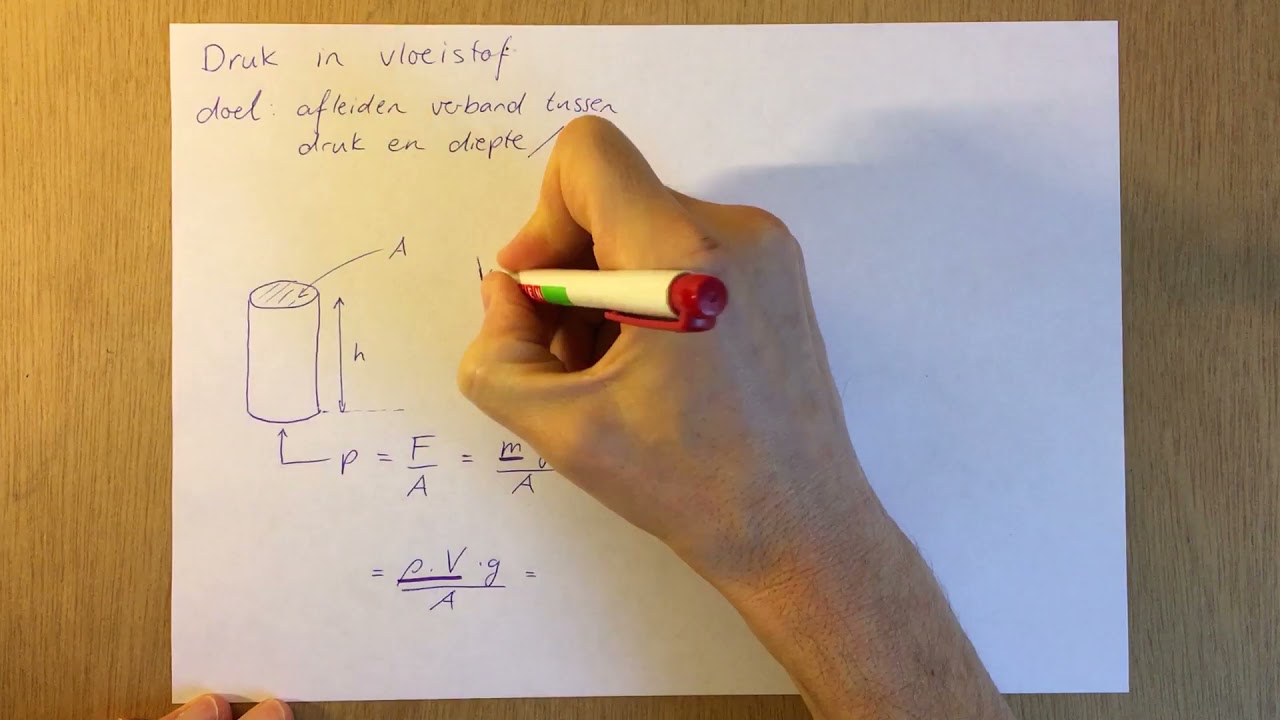 Druk in vloeistof
doel: afleiden verband tussen
druk en diepte /
A
h
p = F/A = m / A
= ρ·V·g / A =